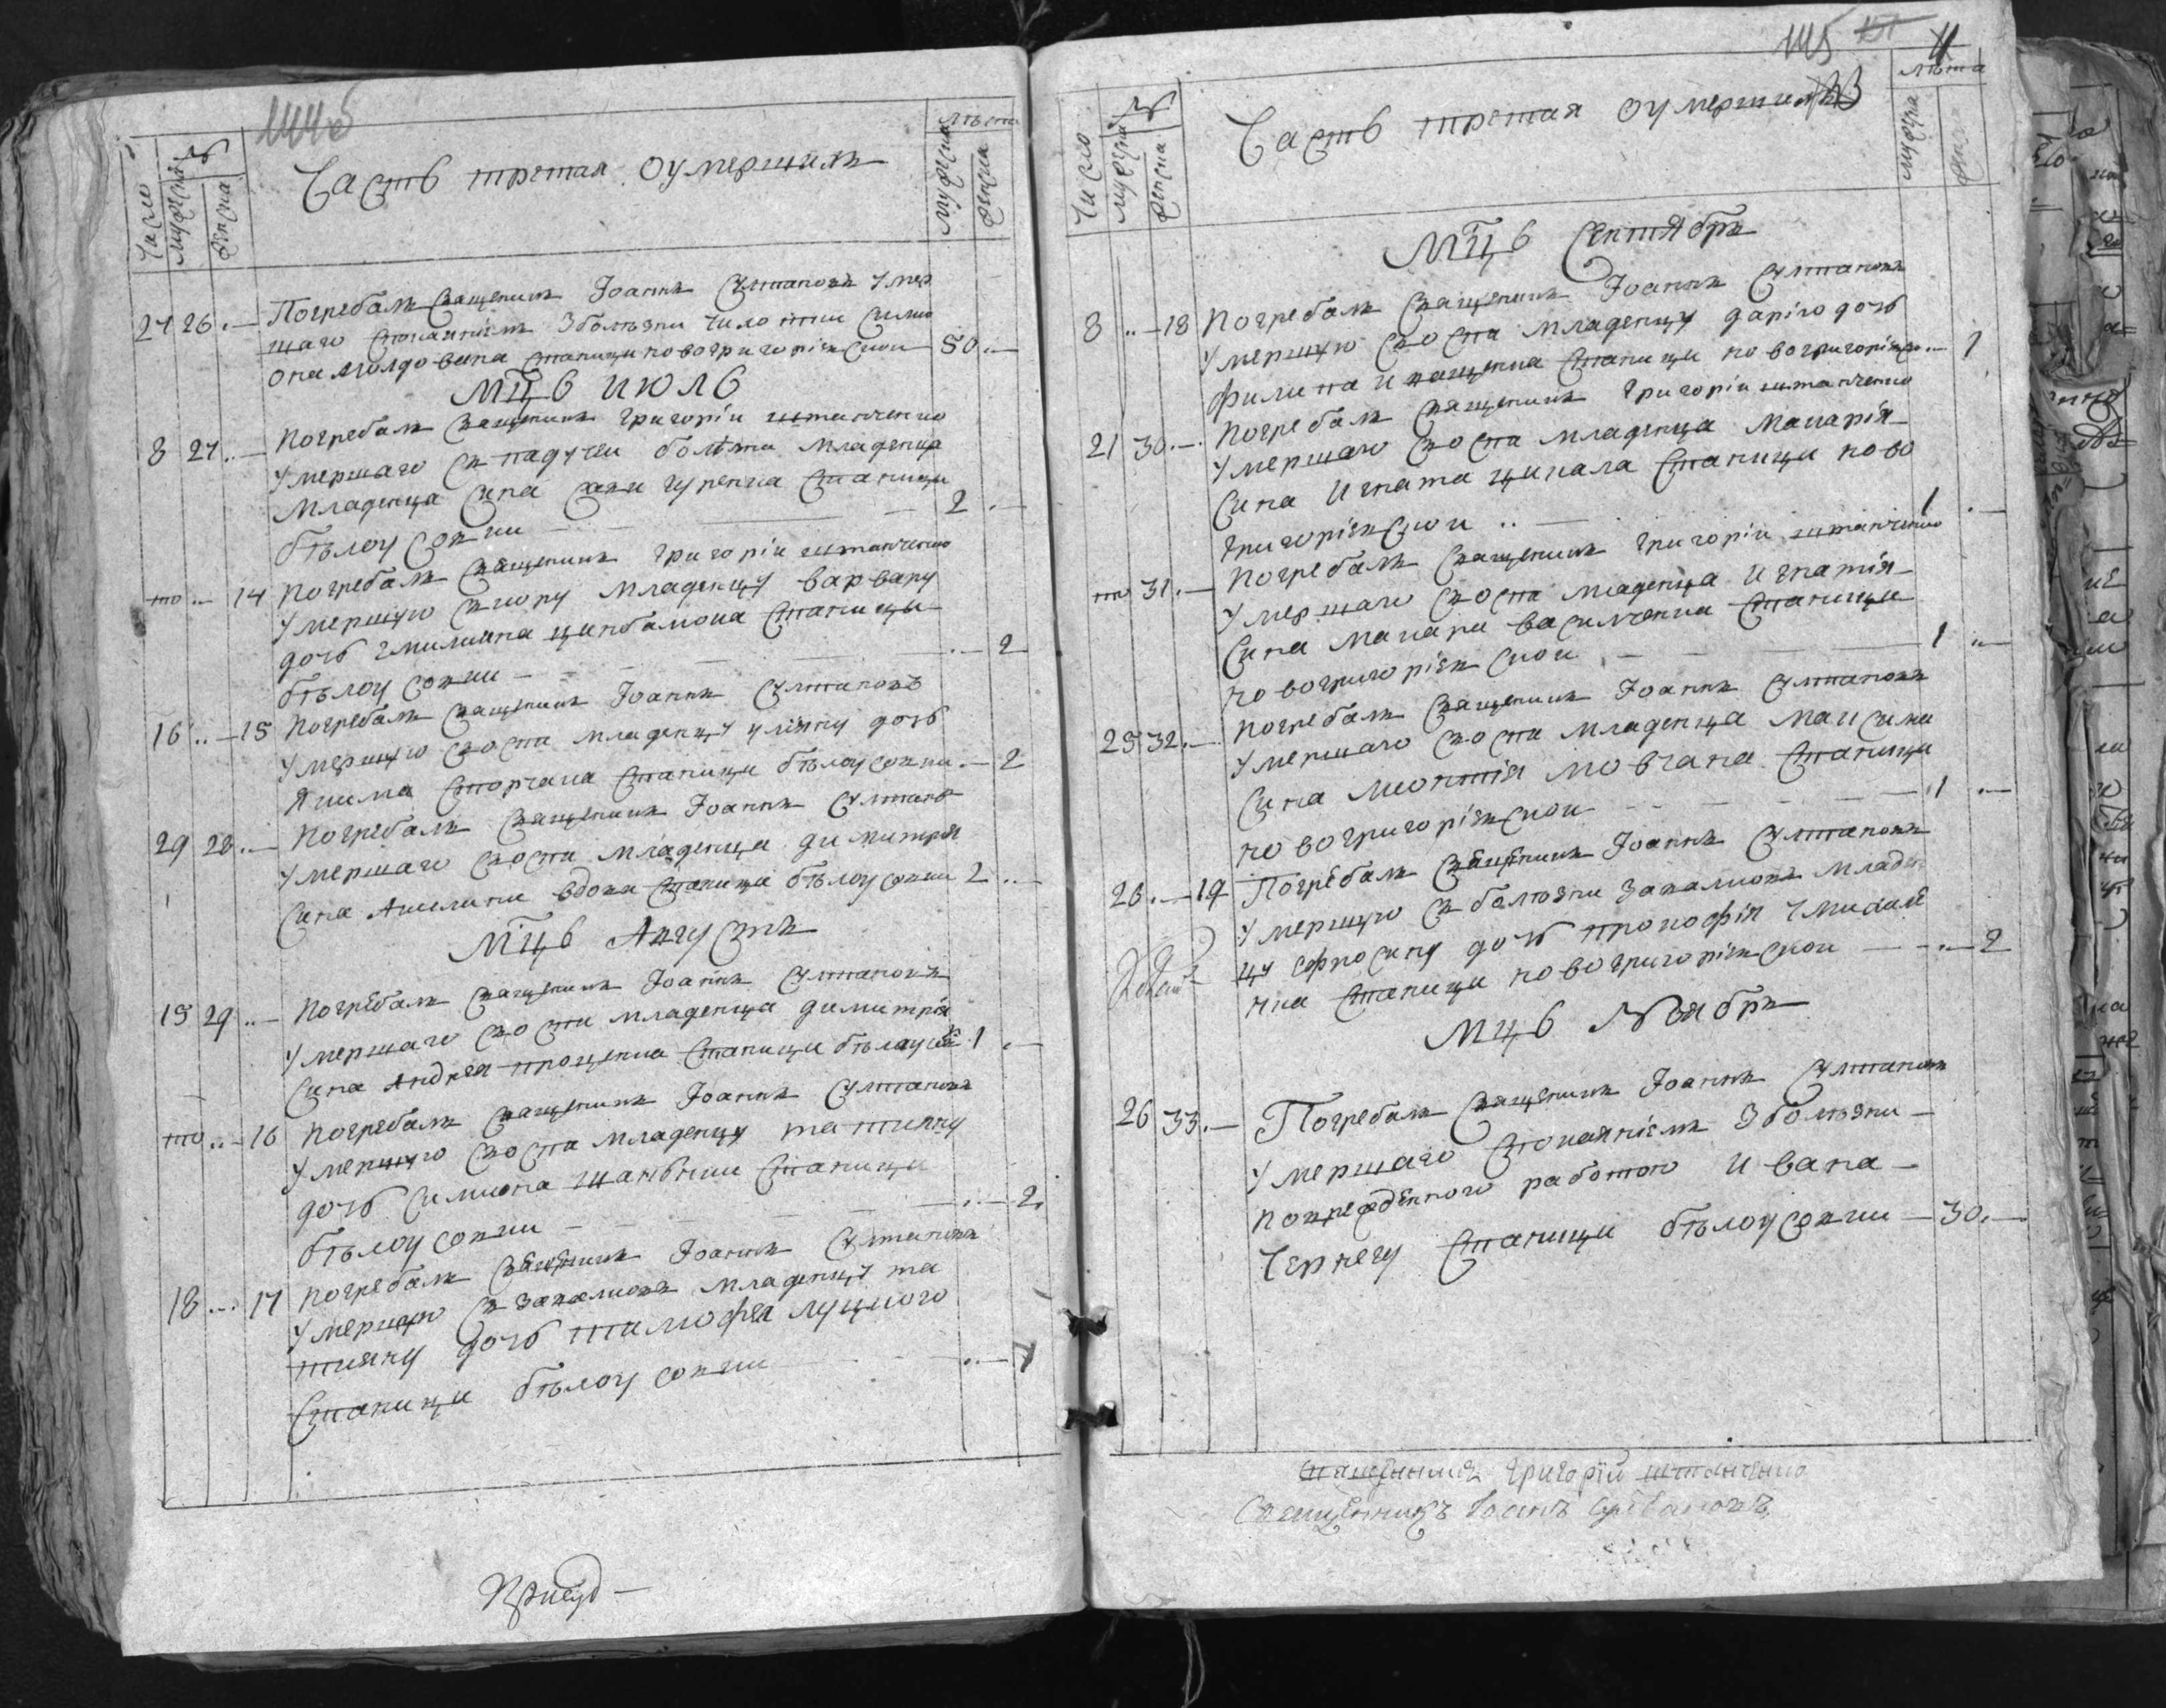 Часть третая оумершихъ
Число
мужеска
женска
лѣта
мужеска
женска
27 26 Погребалъ священикъ Іоаннъ Султановъ умер
шаго спокаяніемъ зболѣзни чилости Симио
она Молдована станици новогригоріевской 50
Мцъ июль
8 27 Погребалъ священикъ Григорій
умершаго съ падучей болѣзти младенца
младенца сина Сави Гуренка станици
бѣлоусовки 2
то 14 Погребалъ священикъ Григорій
умершую младенцу Варвару
дочь Емилиана станици
бѣлоусовки 2
16 15 Погребалъ священикъ Іоаннъ Султановъ
умершую съоспи младенцу Улияну дочь
Якима станици бѣлоусовки 2
29 28 Погребалъ священикъ Іоаннъ Султановъ
умершаго съоспи младенца Димитрія
сина Акилини вдови станици бѣлоусовки 2
Мцъ Августъ
15 29 Погребалъ священикъ Іоаннъ Султановъ
умершаго съоспи младенца Димитрія
сина Андрея Проценка станици бѣлоусов 1
то 16 Погребалъ священикъ Іоаннъ Султановъ
умершую съоспи младенцу Татияну
дочь Симиона станици
бѣлоусовки 2
18 17 Погребалъ священикъ Іоаннъ Султановъ
умершую съ завалковъ младенцу Та
тияну дочь Тимофея Луцкого
станици бѣлоусовки
Часть третая оумершихъ
Число
мужеска
женска
лѣта
мужеска
Мцъ Сентябрь
8 18 Погребалъ священикъ Іоаннъ Султановъ
умершую съоспи младенцу Дарію дочь
Филипа Иващенка станици новогригорієвско 1
21 30 Погребалъ священикъ Григорій
умершаго съоспи младенца Макарія
сина Игната Цикала станици ново
григоріевской 1
то 31 Погребалъ священикъ Григорій
умершаго съоспи младенца Игнатія
сина Макари Василченка станици
новогригоріевской 1
25 32 Погребалъ священикъ Іоаннъ Султановъ
умершаго съоспи младенца Максима
сина Леонтія Мовчана станици
новогригоріевской 1
26 19 Погребалъ священикъ Іоаннъ Султановъ
умершую съ болѣзни завалковъ младен
цу Ефросину дочь Прокофія
нка станици новогригоріевской 2
Мцъ Ноябрь
26 33 Погребалъ священикъ Іоаннъ Султановъ
умершаго спокаяніемъ зболѣзни
поврежденного работою Ивана
Чернегу станици бѣлоусовки 30
священникъ Григорій
Священникъ Іоанъ Султановъ